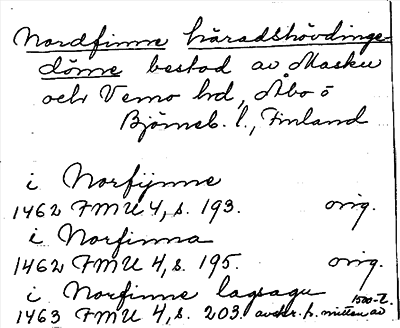 Nordfinne häradshövdinge-
döme bestod av Masku
och Vemo hd, Åbo o
Björneb. l., Finland
i Norfijnne
1462 FMU 4, s. 193. orig.
i Norfinna
1462 FMU 4, s. 195. orig.
i Norfinne lagsagu
1463 FMU 4, s. 203. avskr. f. mitten av 1500-t.